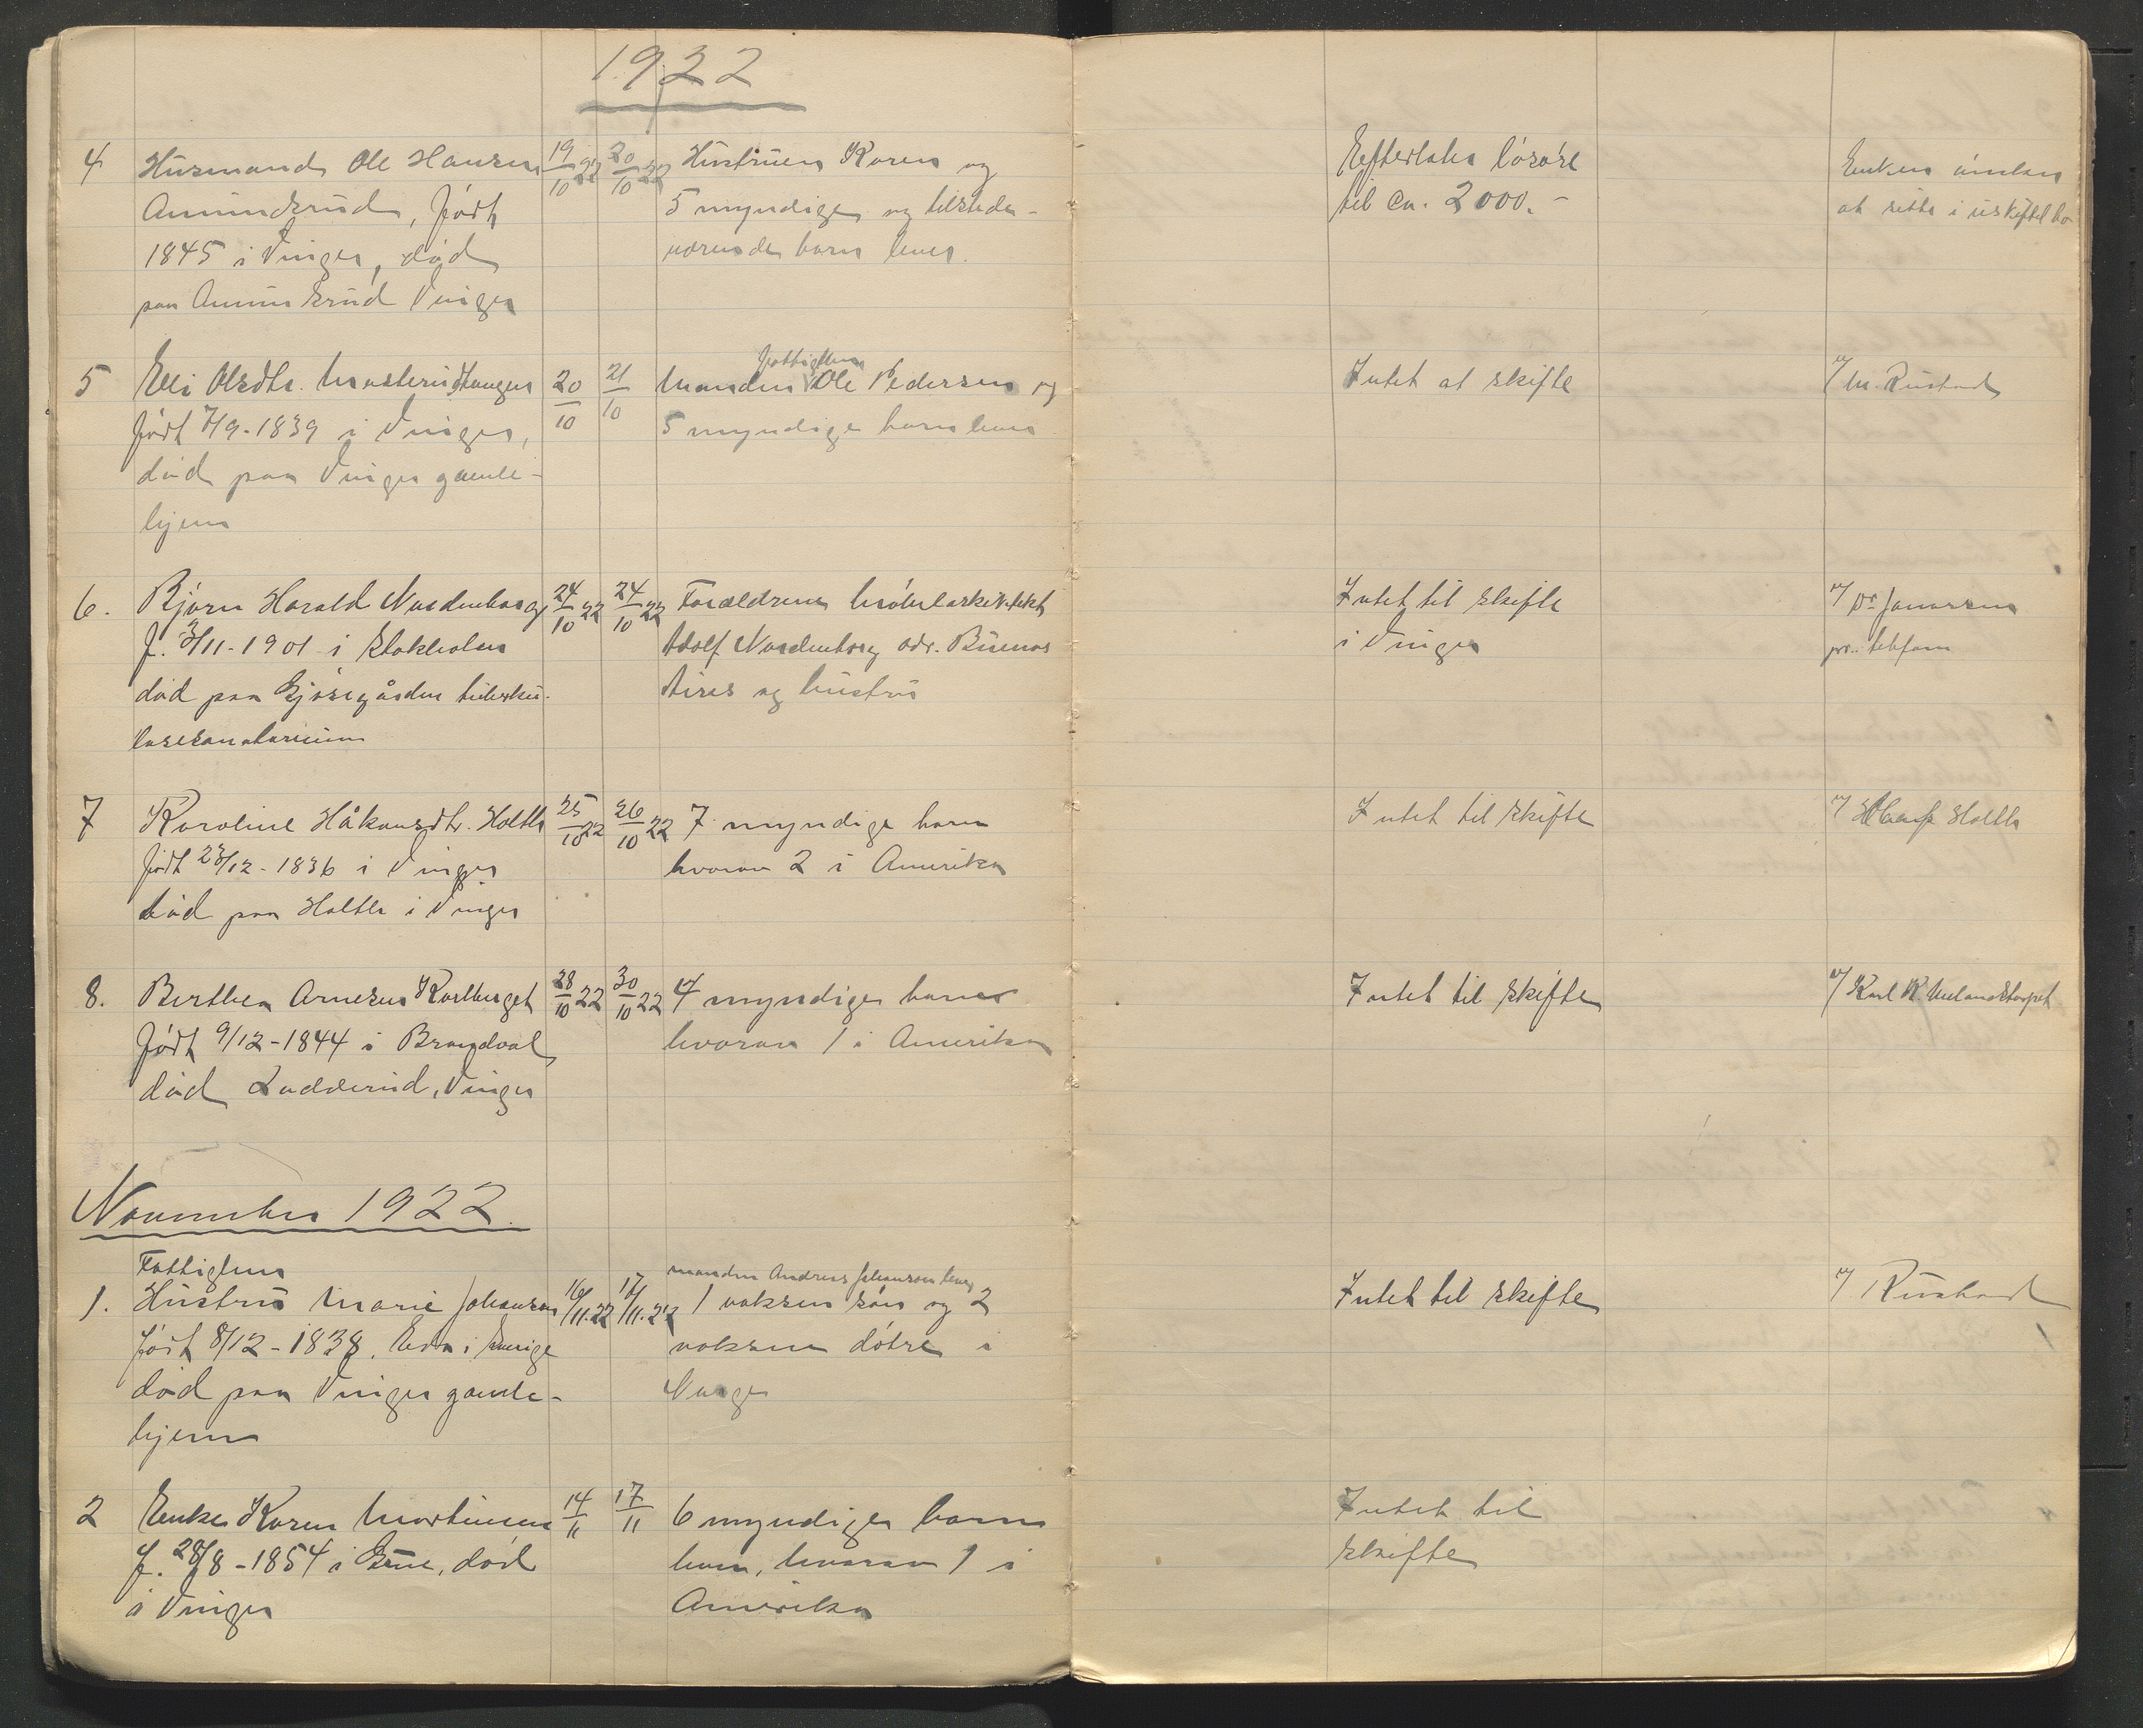 1922
4 Husmand Ole Hansen 19/10 22 20/10 22 Hustruen Karen og Efterlater løsøre Enken ønsker
Amundsrud, født 5 myndige og tilstede- til ca. 2000.- at sitte i uskiftet bo
1845 i Vinger, død værende barn lever.
paa Amundsrud Vinger
5 Eli Olsdtr. Masterudtangen 20/10 21/10 Manden fattiglem Ole Pedersen og Intet at skifte v/ M. Rustad
født 7/9-1839 i Vinger, 5 myndige barn lever
død paa Vinger gamle-
hjem
6. Bjørn Harald Nordenborg 24/10 22 24/10 22 Forældrene Møbelarkitekt Intet til skifte v/ Dr Janssen
f. 3/11-1901 i Stokholm Adolf Nordenborg adr. Buenos i Vinger pr. telefon
død paa Gjøsegården tuberku- Aires og hustru
losesanatorium
7 Karoline Håkonsdtr. Holth 25/10 22 26/10 22 7 myndige barn Intet til skifte v/ Olaf Holth
født 23/12-1836 i Vinger hvorav 2 i Amerika
død paa Holth i Vinger
8. Berthea Arnesen Karlberget 28/10 22 30/10 22 4 myndige barn Intet til skifte v/ Karl K.
født 9/12-1844 i Brandval hvorav 1 i Amerika
død Ladderud, Vinger
November 1922.
Fattiglem manden Andreas Johansen lever
1. Hustru Marie Johansen 16/11.22 17/11.22 1 voksen søn og 2 Intet til skifte v/ Rustad
født 8/12-1838. Eda i Sverige voksne døtre i
død paa Vinger gamle- Norge
hjem
2 Enke Karen Martinsen 14/11 17/11 6 myndige barn Intet til
f. 28/8-1854 i Grue, død lever, hvorav 1 i skifte
i Vinger Amerika